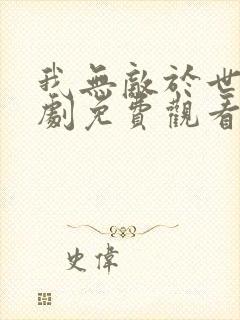 我無敵於世
劇免費觀看
史偉